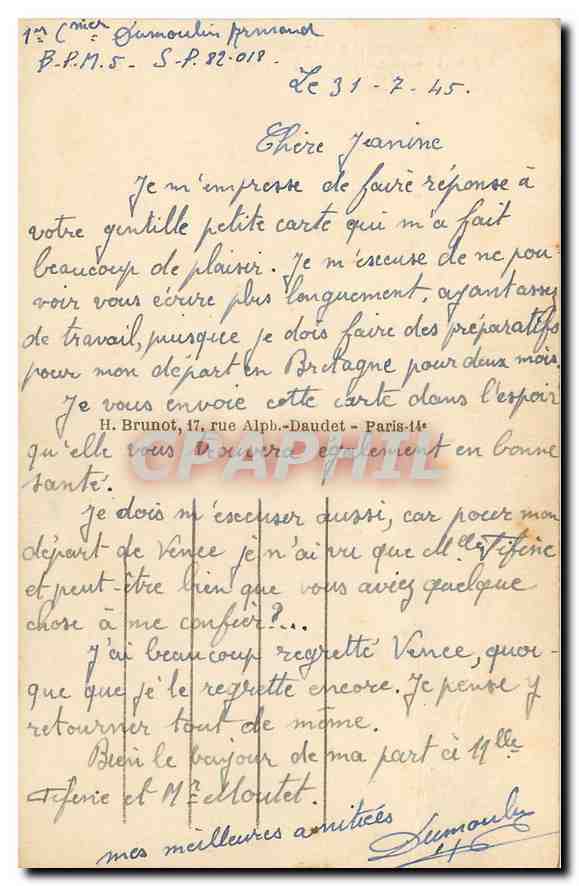 1er Cmier Dumoulin Armand
B.P.M.5 - S-P. 82.018.
Le 31 - 7 - 45.
Chère Jeanine
Je m'empresse de faire réponse à
votre gentille petite carte qui m'a fait
beaucoup de plaisir. Je m'excuse de ne pou
voir vous écrire plus longuement, ayant assez
de travail, puisque je dois faire des préparatifs
pour mon départ en Bretagne pour deux mois.
Je vous envoie cette carte dans l'espoir
H. Brunot, 17, rue Alph.-Daudet - Paris-14e
qu'elle vous trouvera également en bonne
CPAPHIL
santé.
Je dois m'excuser aussi, car pour mon
départ de Vence je n'ai vu que Mlle Fifine
et peut-être bien que vous aviez quelque
chose à me confier?...
J'ai beaucoup regretté Vence, quoi-
que que je le regrette encore. Je pense y
retourner tout de même.
Bien le bonjour de ma part à Mlle
Fifine et Mr Moutet.
mes meilleures amitiées
Dumoulin